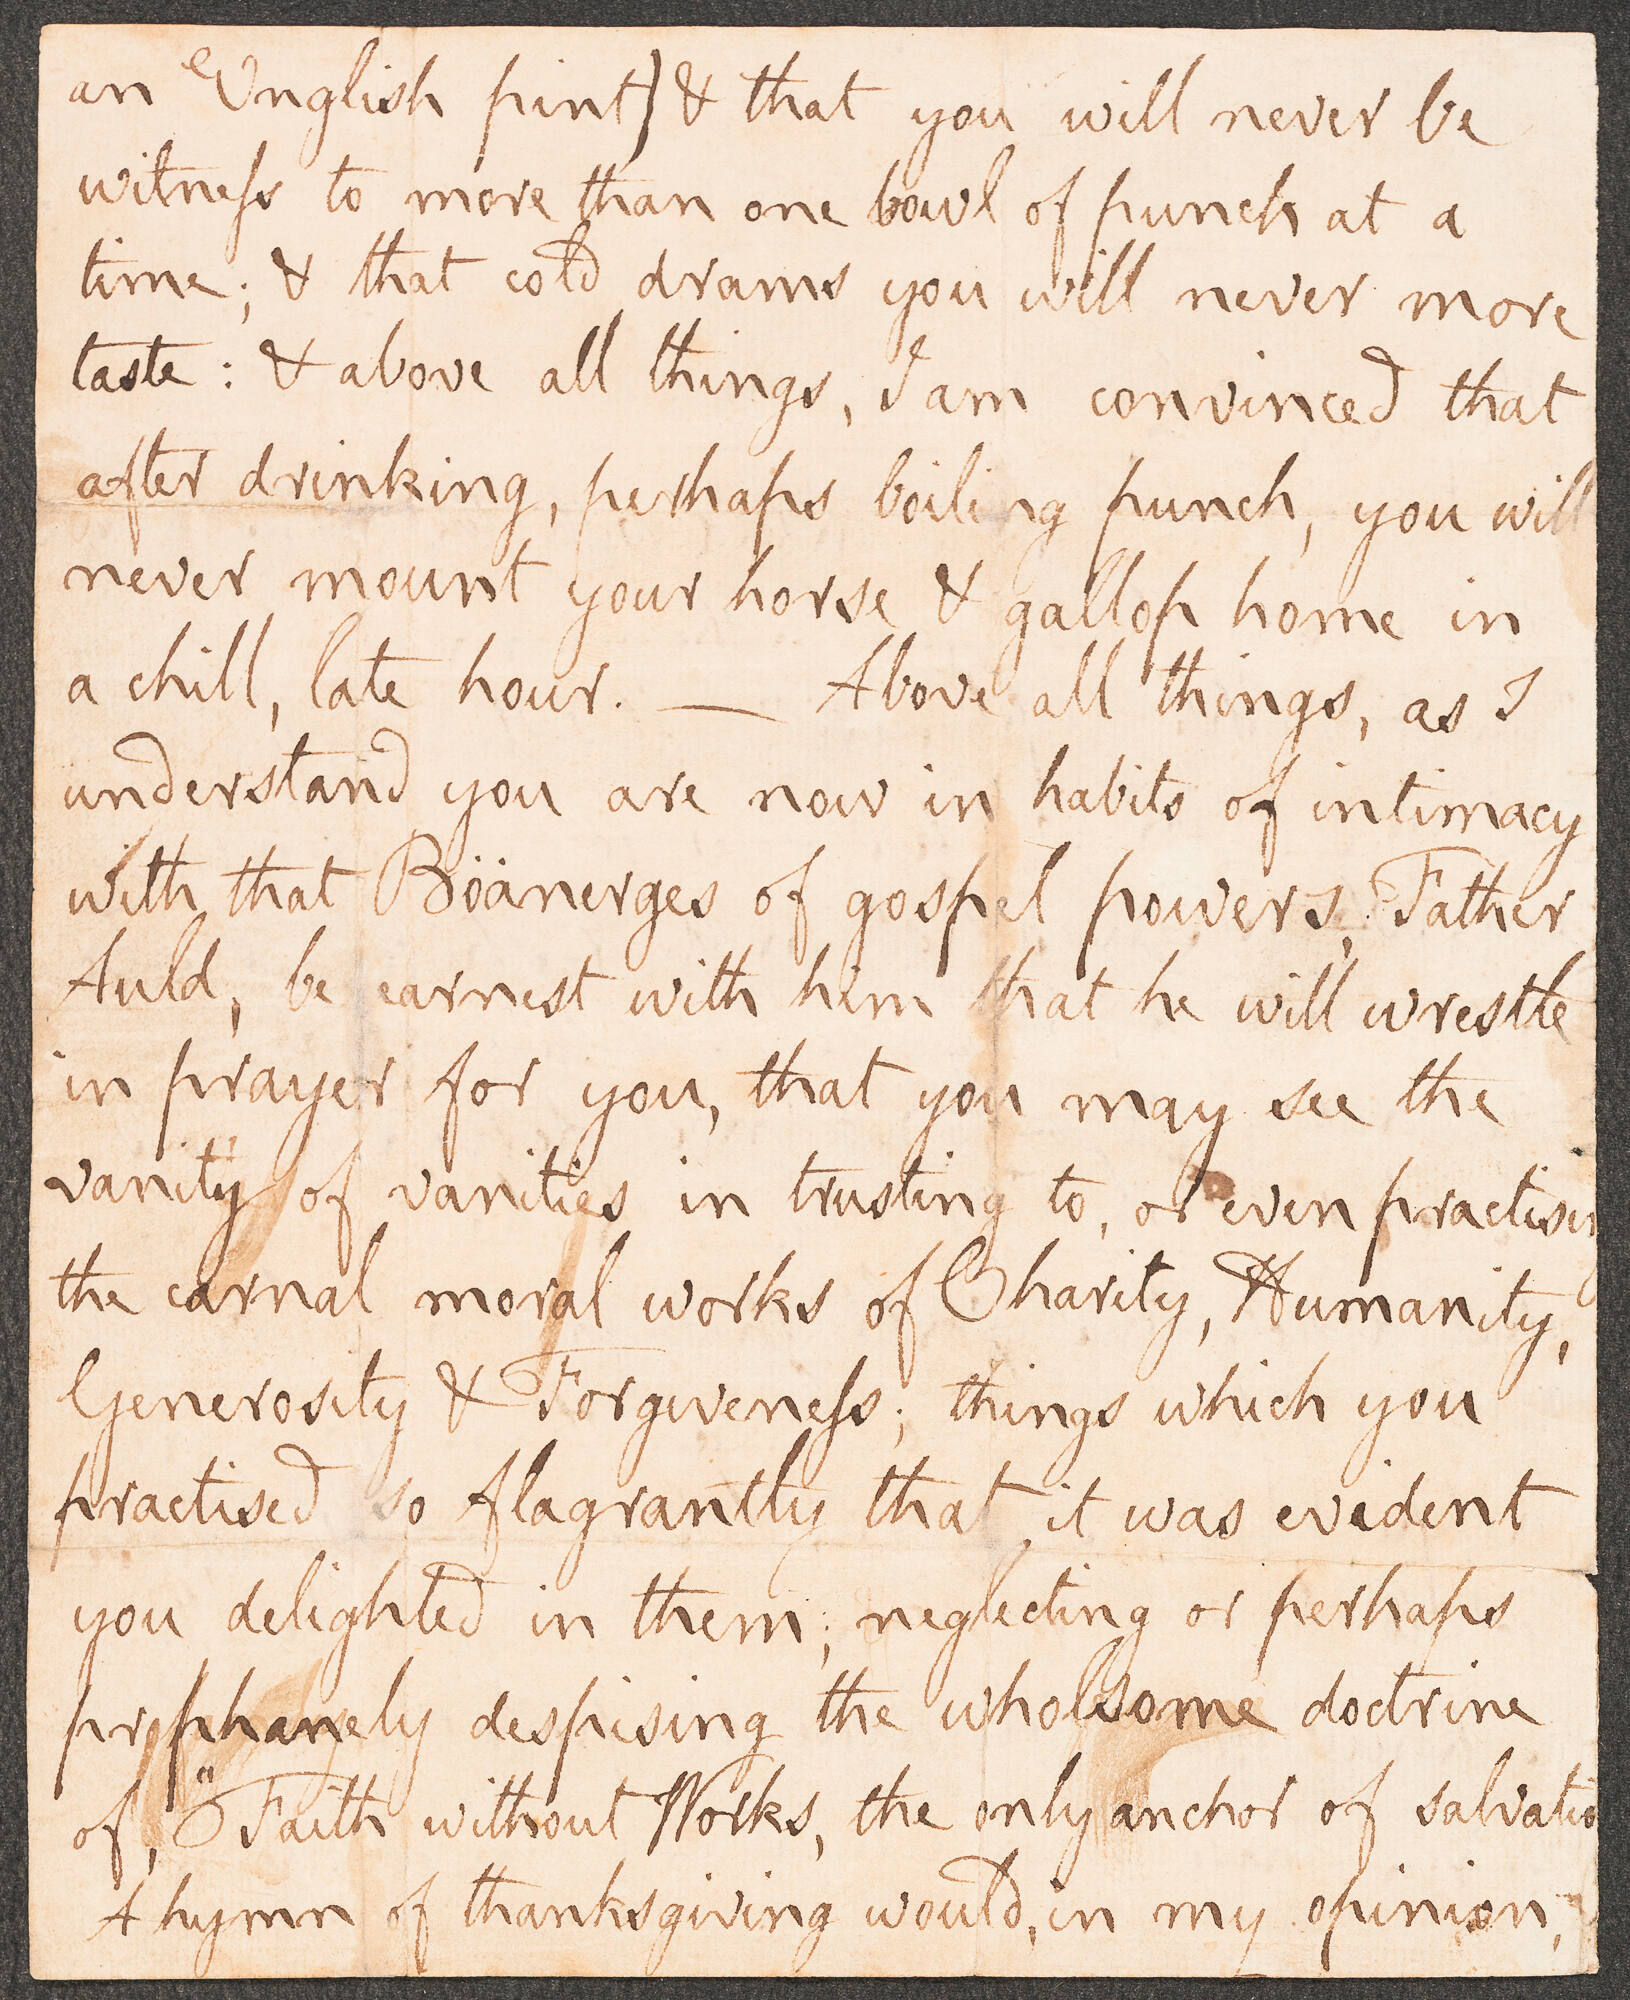 an English pint) & that you will never be
witness to more than one bowl of punch at a
time; & that cold drams you will never more
taste: & above all things, I am convinced that
after drinking, perhaps boiling punch, you will
never mount your horse & gallop home in
a chill, late hour. — Above all things, as I
understand you are now in habits of intimacy
with that Böänerges of gospel powers, Father
Auld, be earnest with him that he will wrestle
in prayer for you, that you may see the
vanity of vanities in trusting to, or even practisin
the carnal moral works of Charity, Humanity,
Generosity & Forgiveness; things which you
practised so flagrantly that it was evident
you delighted in them; neglecting or perhaps
prophanely despising the wholsome doctrine
of, "Faith without Works, the only anchor of salvatio
A hymn of thanksgiving would, in my opinion,